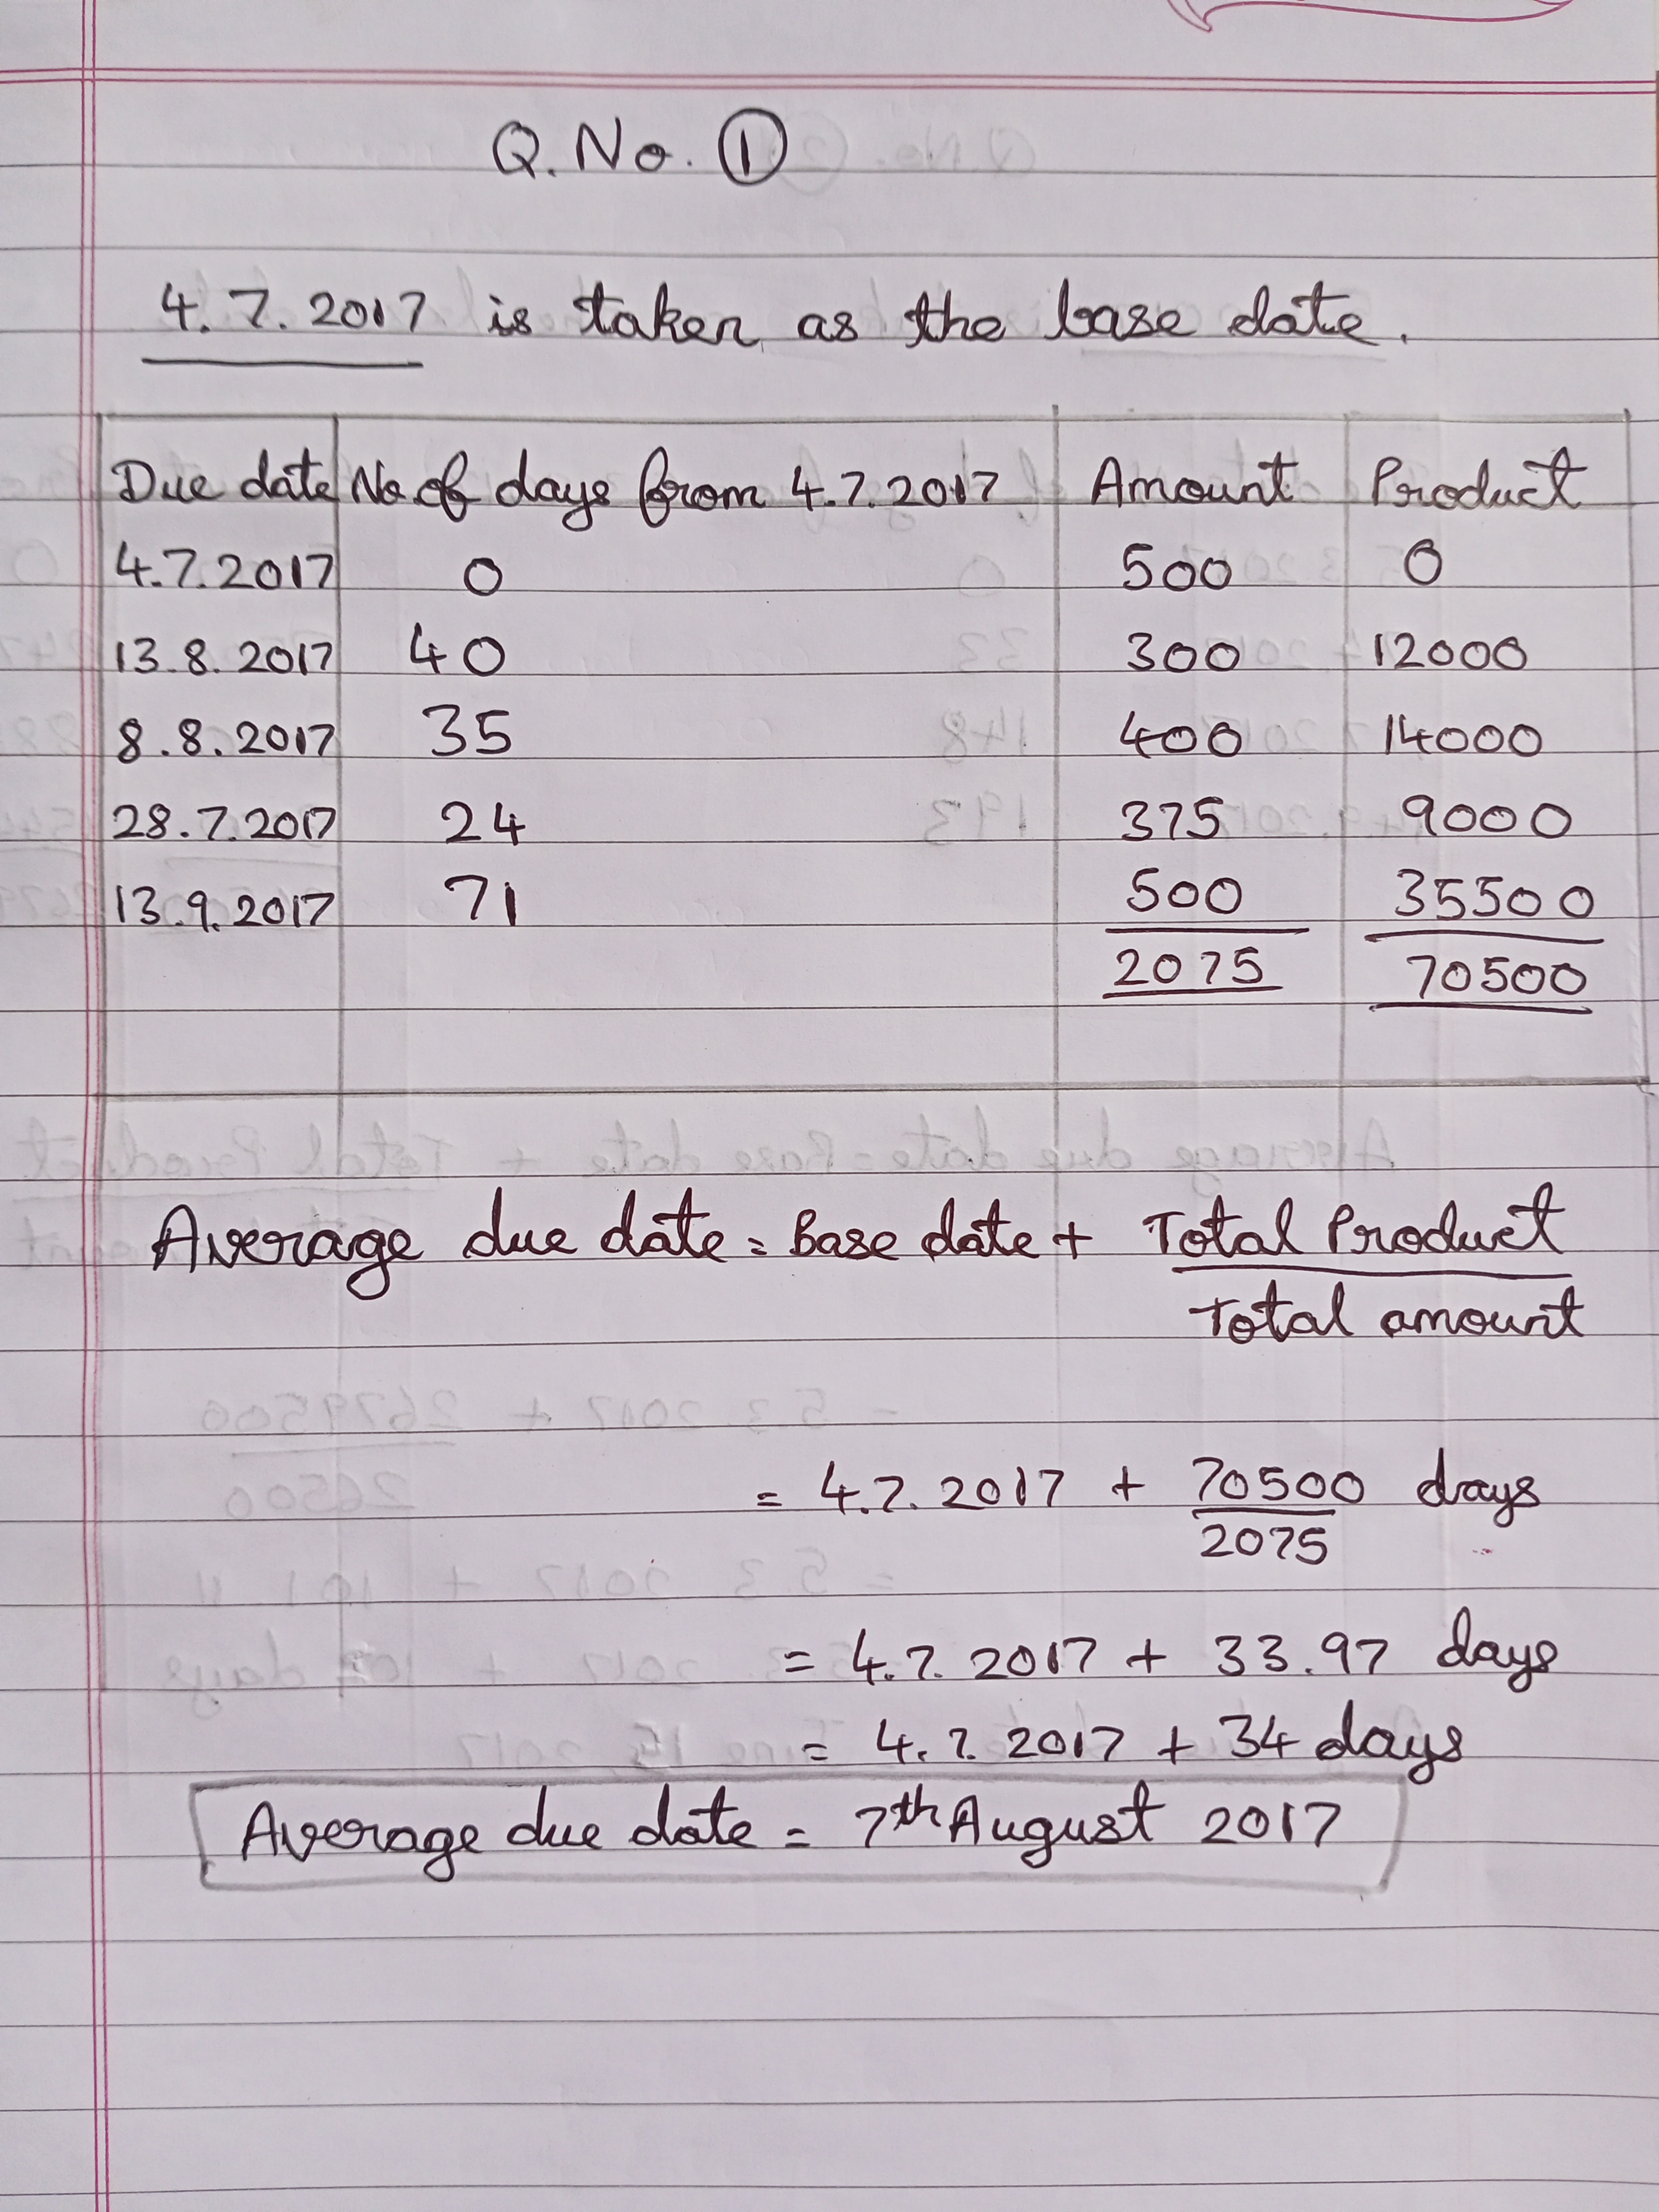 Q. No. ①
4. 7. 2017 is taken as the base date.
Due date No of days from 4.7.2017 Amount Product
4.7.2017 0 500 0
13.8.2017 40 300 12000
8.8.2017 35 400 14000
28.7.2017 24 375 9000
13.9.2017 71 500 35500
2075 70500
Average due date = Base date + Total Product
Total amount
= 4.7.2017 + 70500 days
2075
= 4.7.2017 + 33.97 days
= 4.7.2017 + 34 days
Average due date = 7th August 2017